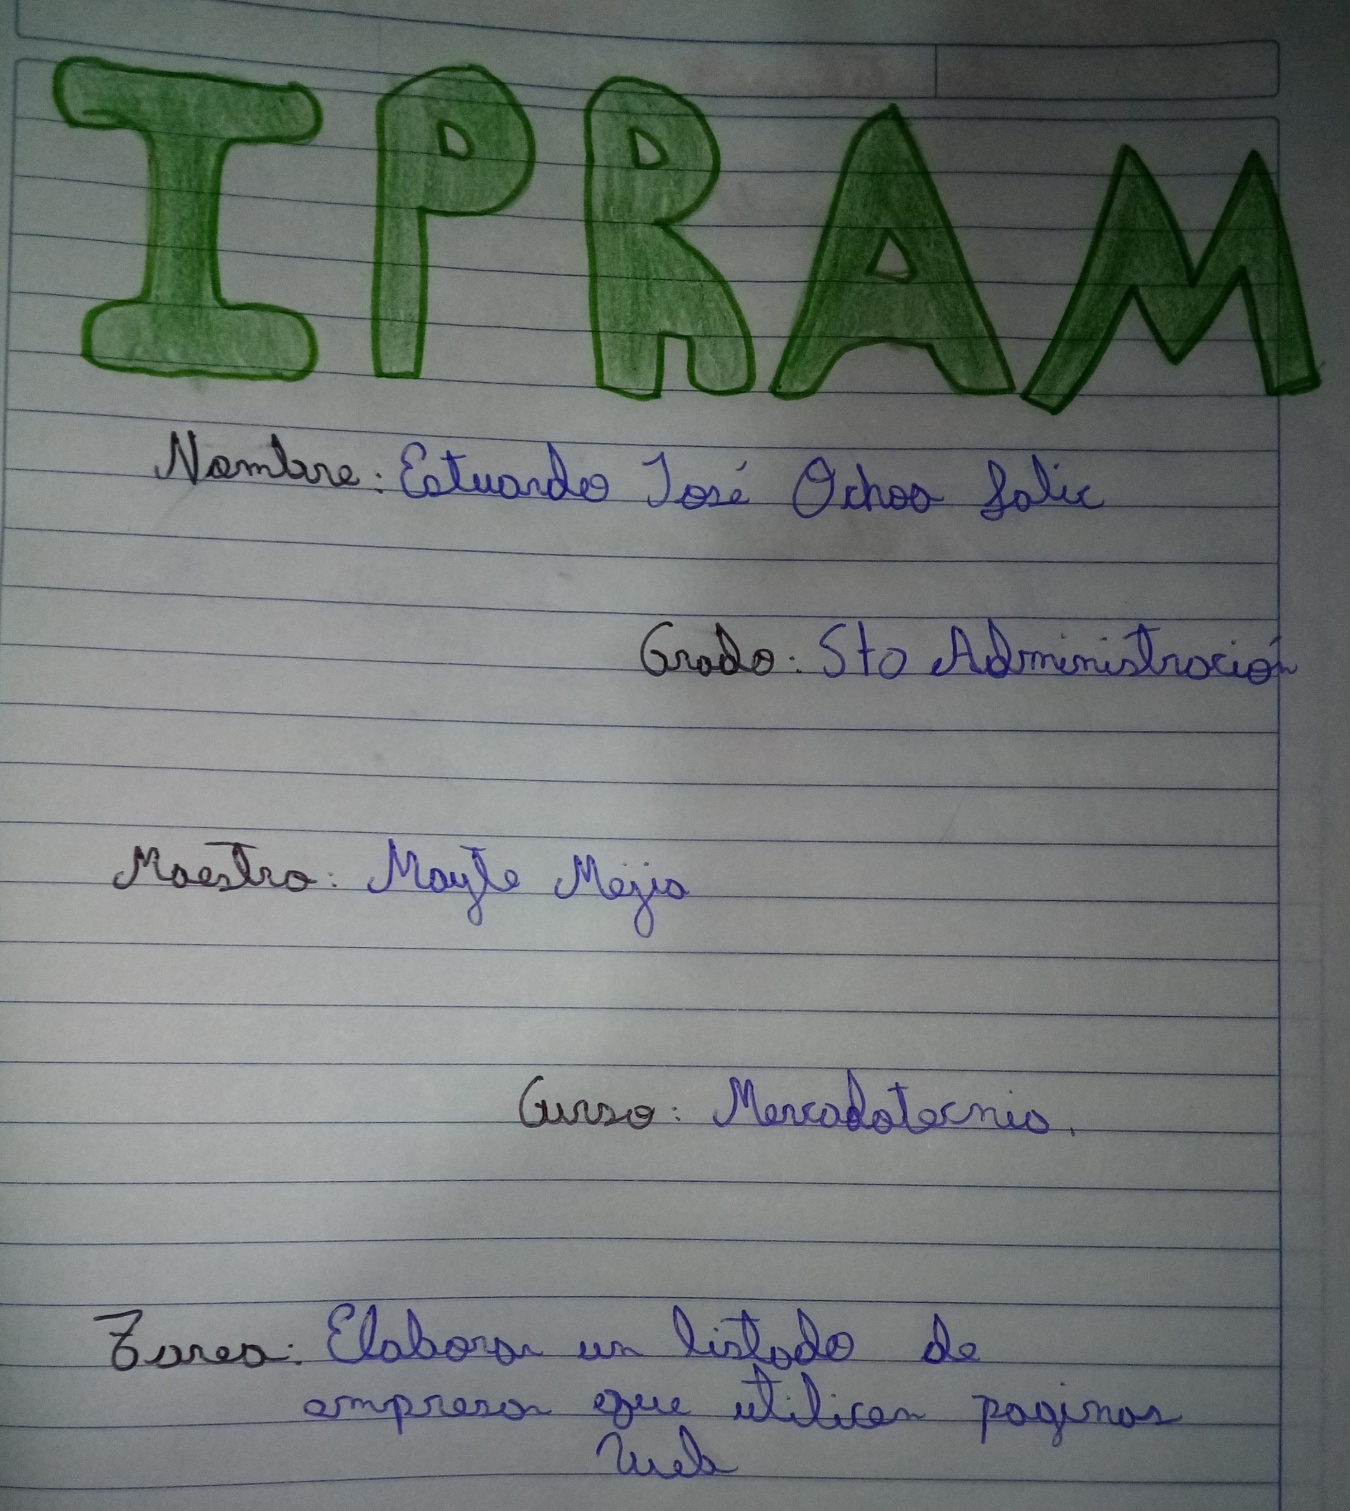 IPRAM
Nombre: Estuardo José Ochoa Solic
Grado: 5to Administración
Maestra: Mayte Mejia
Curso: Mercadotecnia.
Tarea: Elaborar un listado de
empresas que utilicen paginas
Web